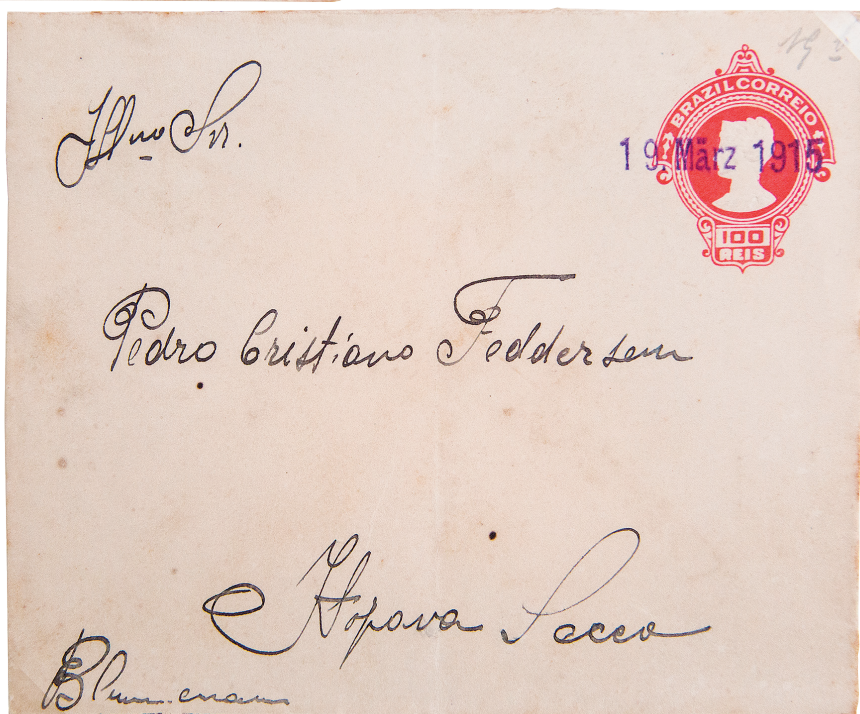 Illmo Snr.
BRAZIL CORREIO
19. März 1915
100
REIS
Pedro Cristiano Feddersen
Itopava Secca
Blumenau